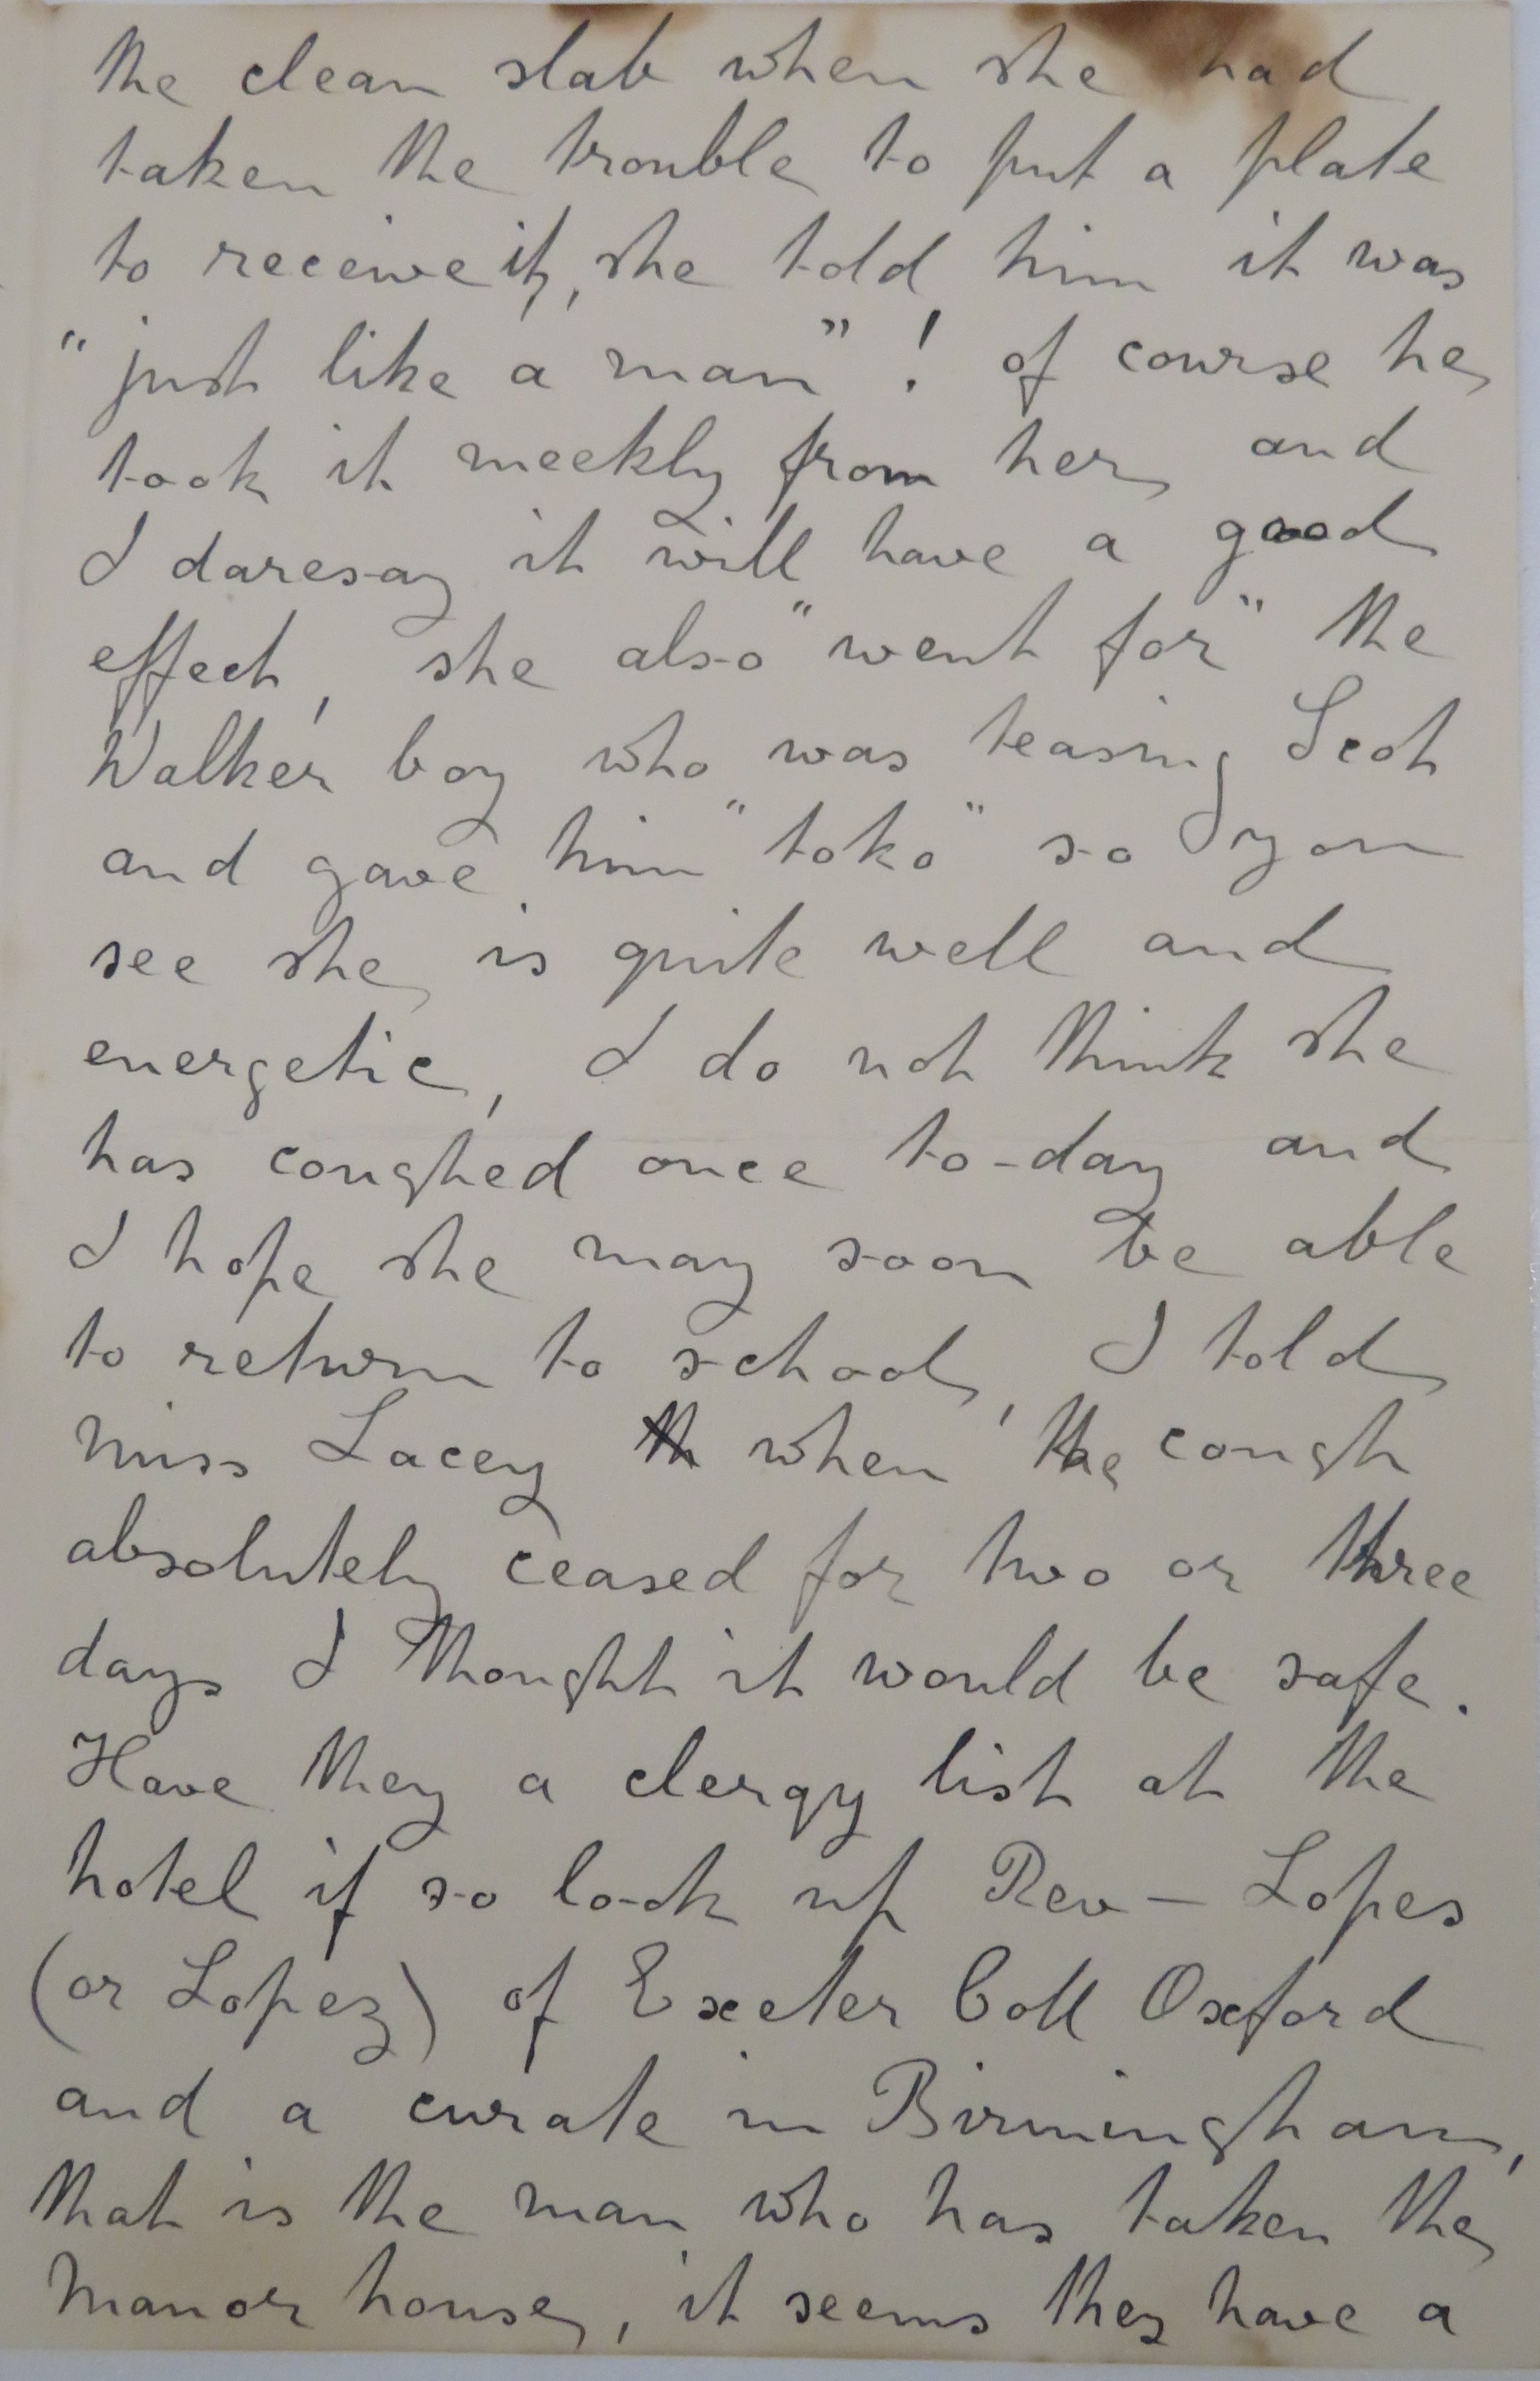 the clean slab when she had
taken the trouble to put a plate
to receive it, she told him it was
"just like a man"! of course he
took it meekly from her and
I daresay it will have a good
effect, she also "went for" the
Walker boy who was teasing Scot
and gave him "toko" so you
see she is quite well and
energetic, I do not think she
has coughed once to-day and
I hope she may soon be able
to return to school, I told
Miss Lacey when the cough
absolutely ceased for two or three
days I thought it would be safe.
Have they a clergy list at the
hotel if so look up Rev — Lopes
(or Lopez) of Exeter Coll Oxford
and a curate in Birmingham,
that is the man who has taken the
Manor house, it seems they have a